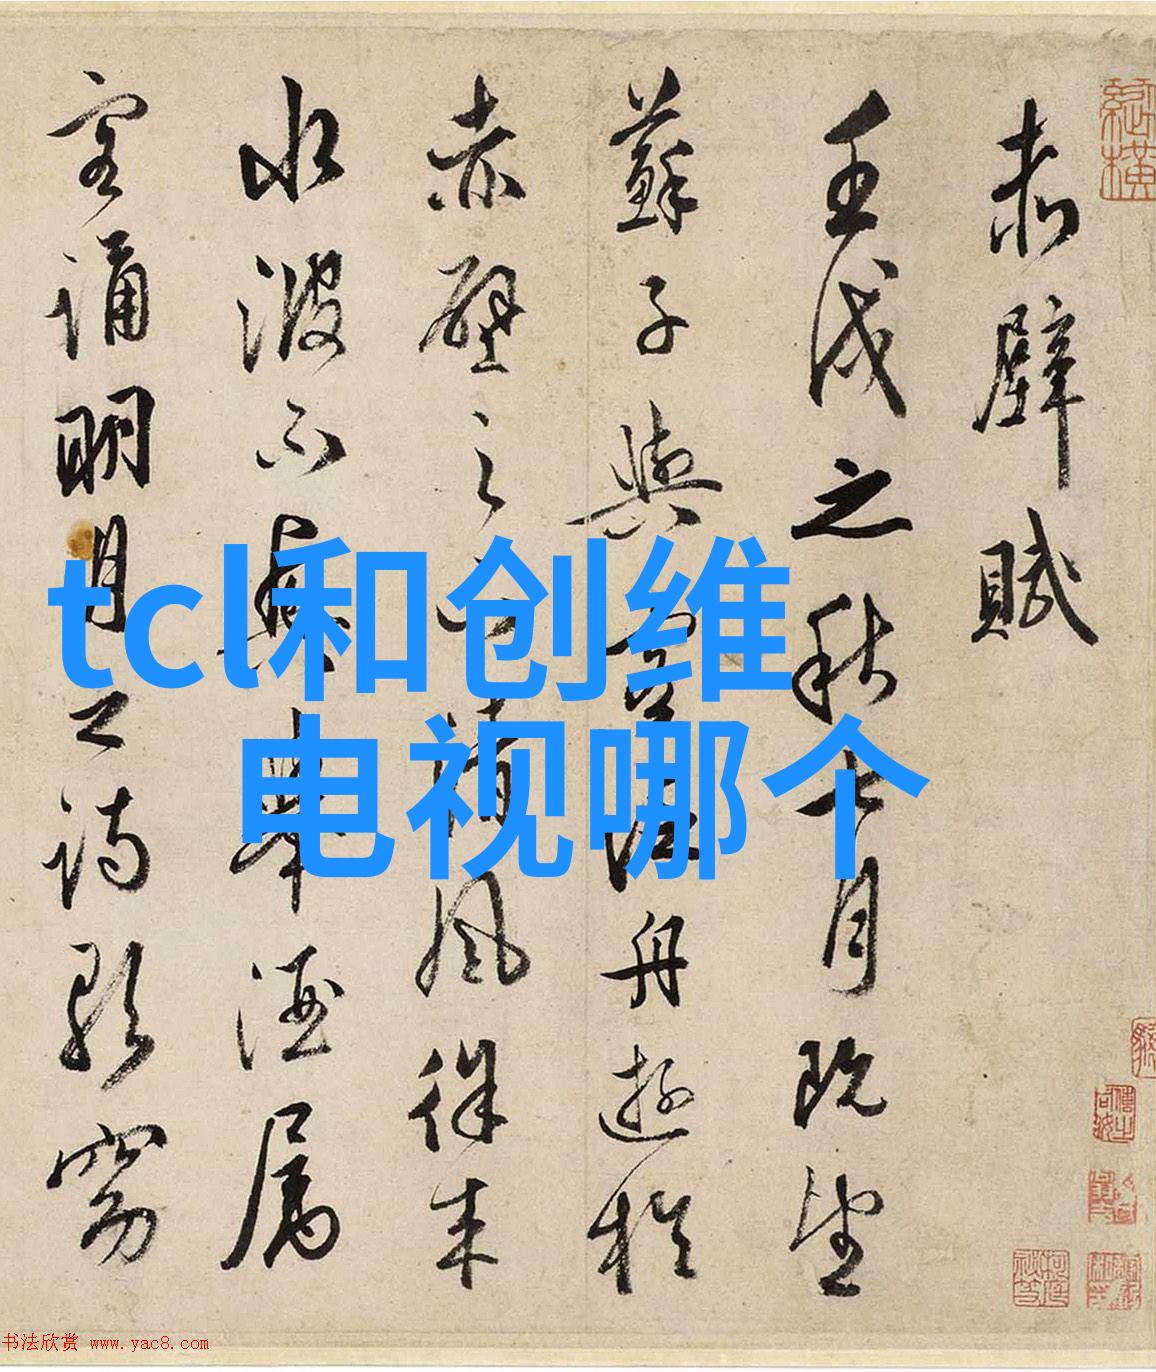 赤壁賦
壬戌之秋七月既望
蘇子與客泛舟遊於
赤壁之下清風徐來
水波不興舉酒屬
客誦明月之詩歌窈
tcl和创维
电视哪个
书法欣赏 www.yac8.com